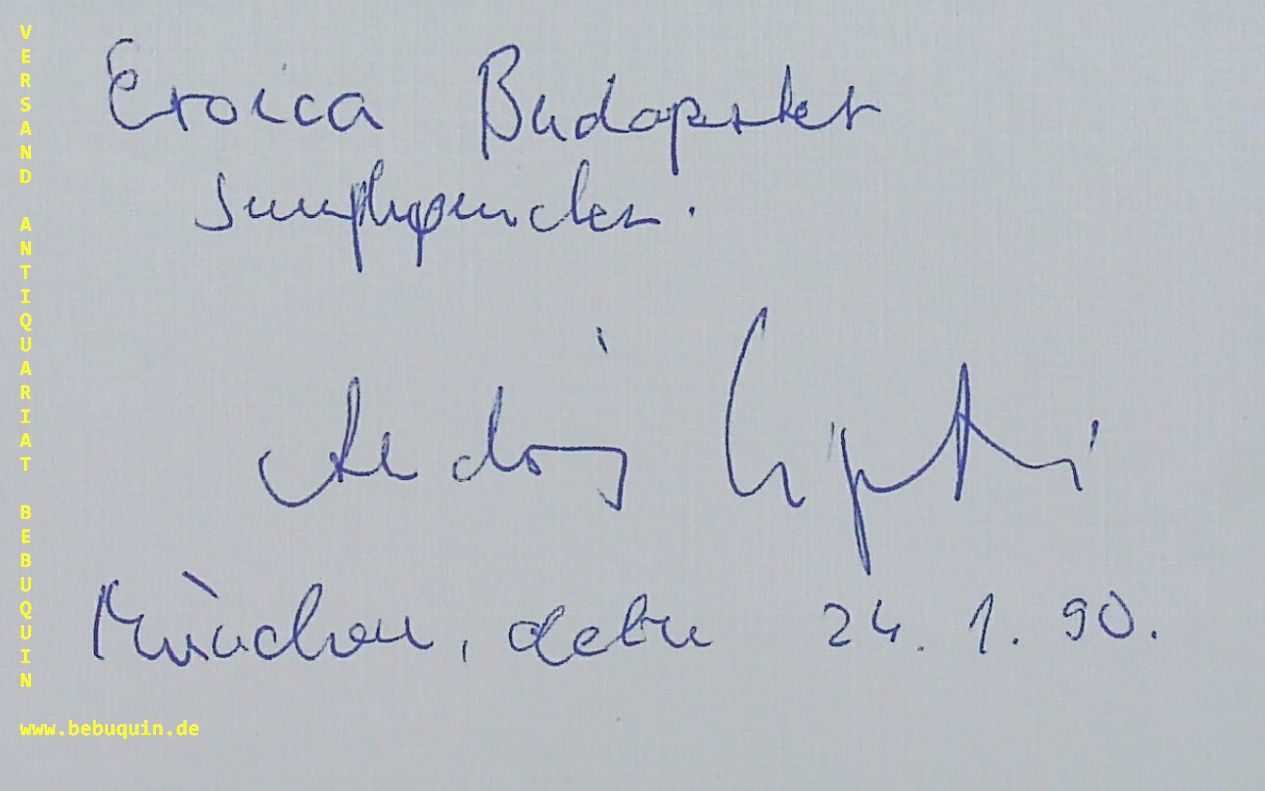 Eroica Budapester
András Ligeti
München, den 24. 1. 90.
VERSAND ANTIQUARIAT BEBUQUIN
www.bebuquin.de